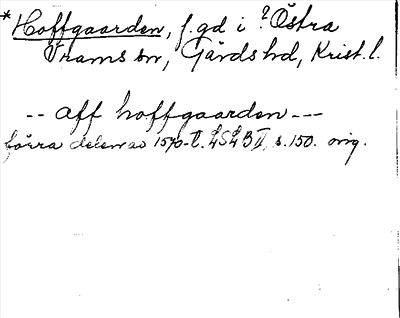 * Hoffgaarden, f. gd i ? Östra
Vrams sn, Gärds hd, Krist. l.
-- aff hoffgaarden ---
förra delen av 1570-t. LSLB II, s. 150. orig.